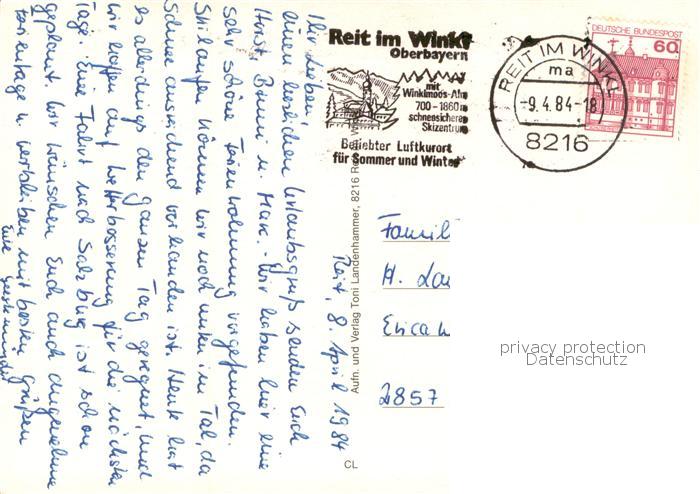 Reit, 8. April 1984
Ihr Lieben!
Einen herzlichen Urlaubsgruß senden Euch
Horst, u. Max. - Wir haben hier eine
sehr schöne Ferienwohnung vorgefunden.
Skilaufen können wir noch unten im Tal, da
Schnee ausreichend vorhanden ist. Heute hat
es allerdings den ganzen Tag geregnet, und
wir hoffen auf Wetterbesserung für die nächsten
Tage. Eine Fahrt nach Salzburg ist schon
geplant. Wir wünschen Euch auch angenehme
Ferientage u. verbleiben mit besten Grüßen
Eure
Reit im Winkl
Oberbayern
mit
Winklmoos-Alm
700-1860m
schneesicheres
Skizentrum
Beliebter Luftkurort
für Sommer und Winter
REIT IM WINKL
ma
-9.4.84-18
8216
DEUTSCHE BUNDESPOST
60
Aufn. und Verlag Toni Landenhammer, 8216 Reit
CL
Famil
H. La
Erica
2857
privacy protection
Datenschutz